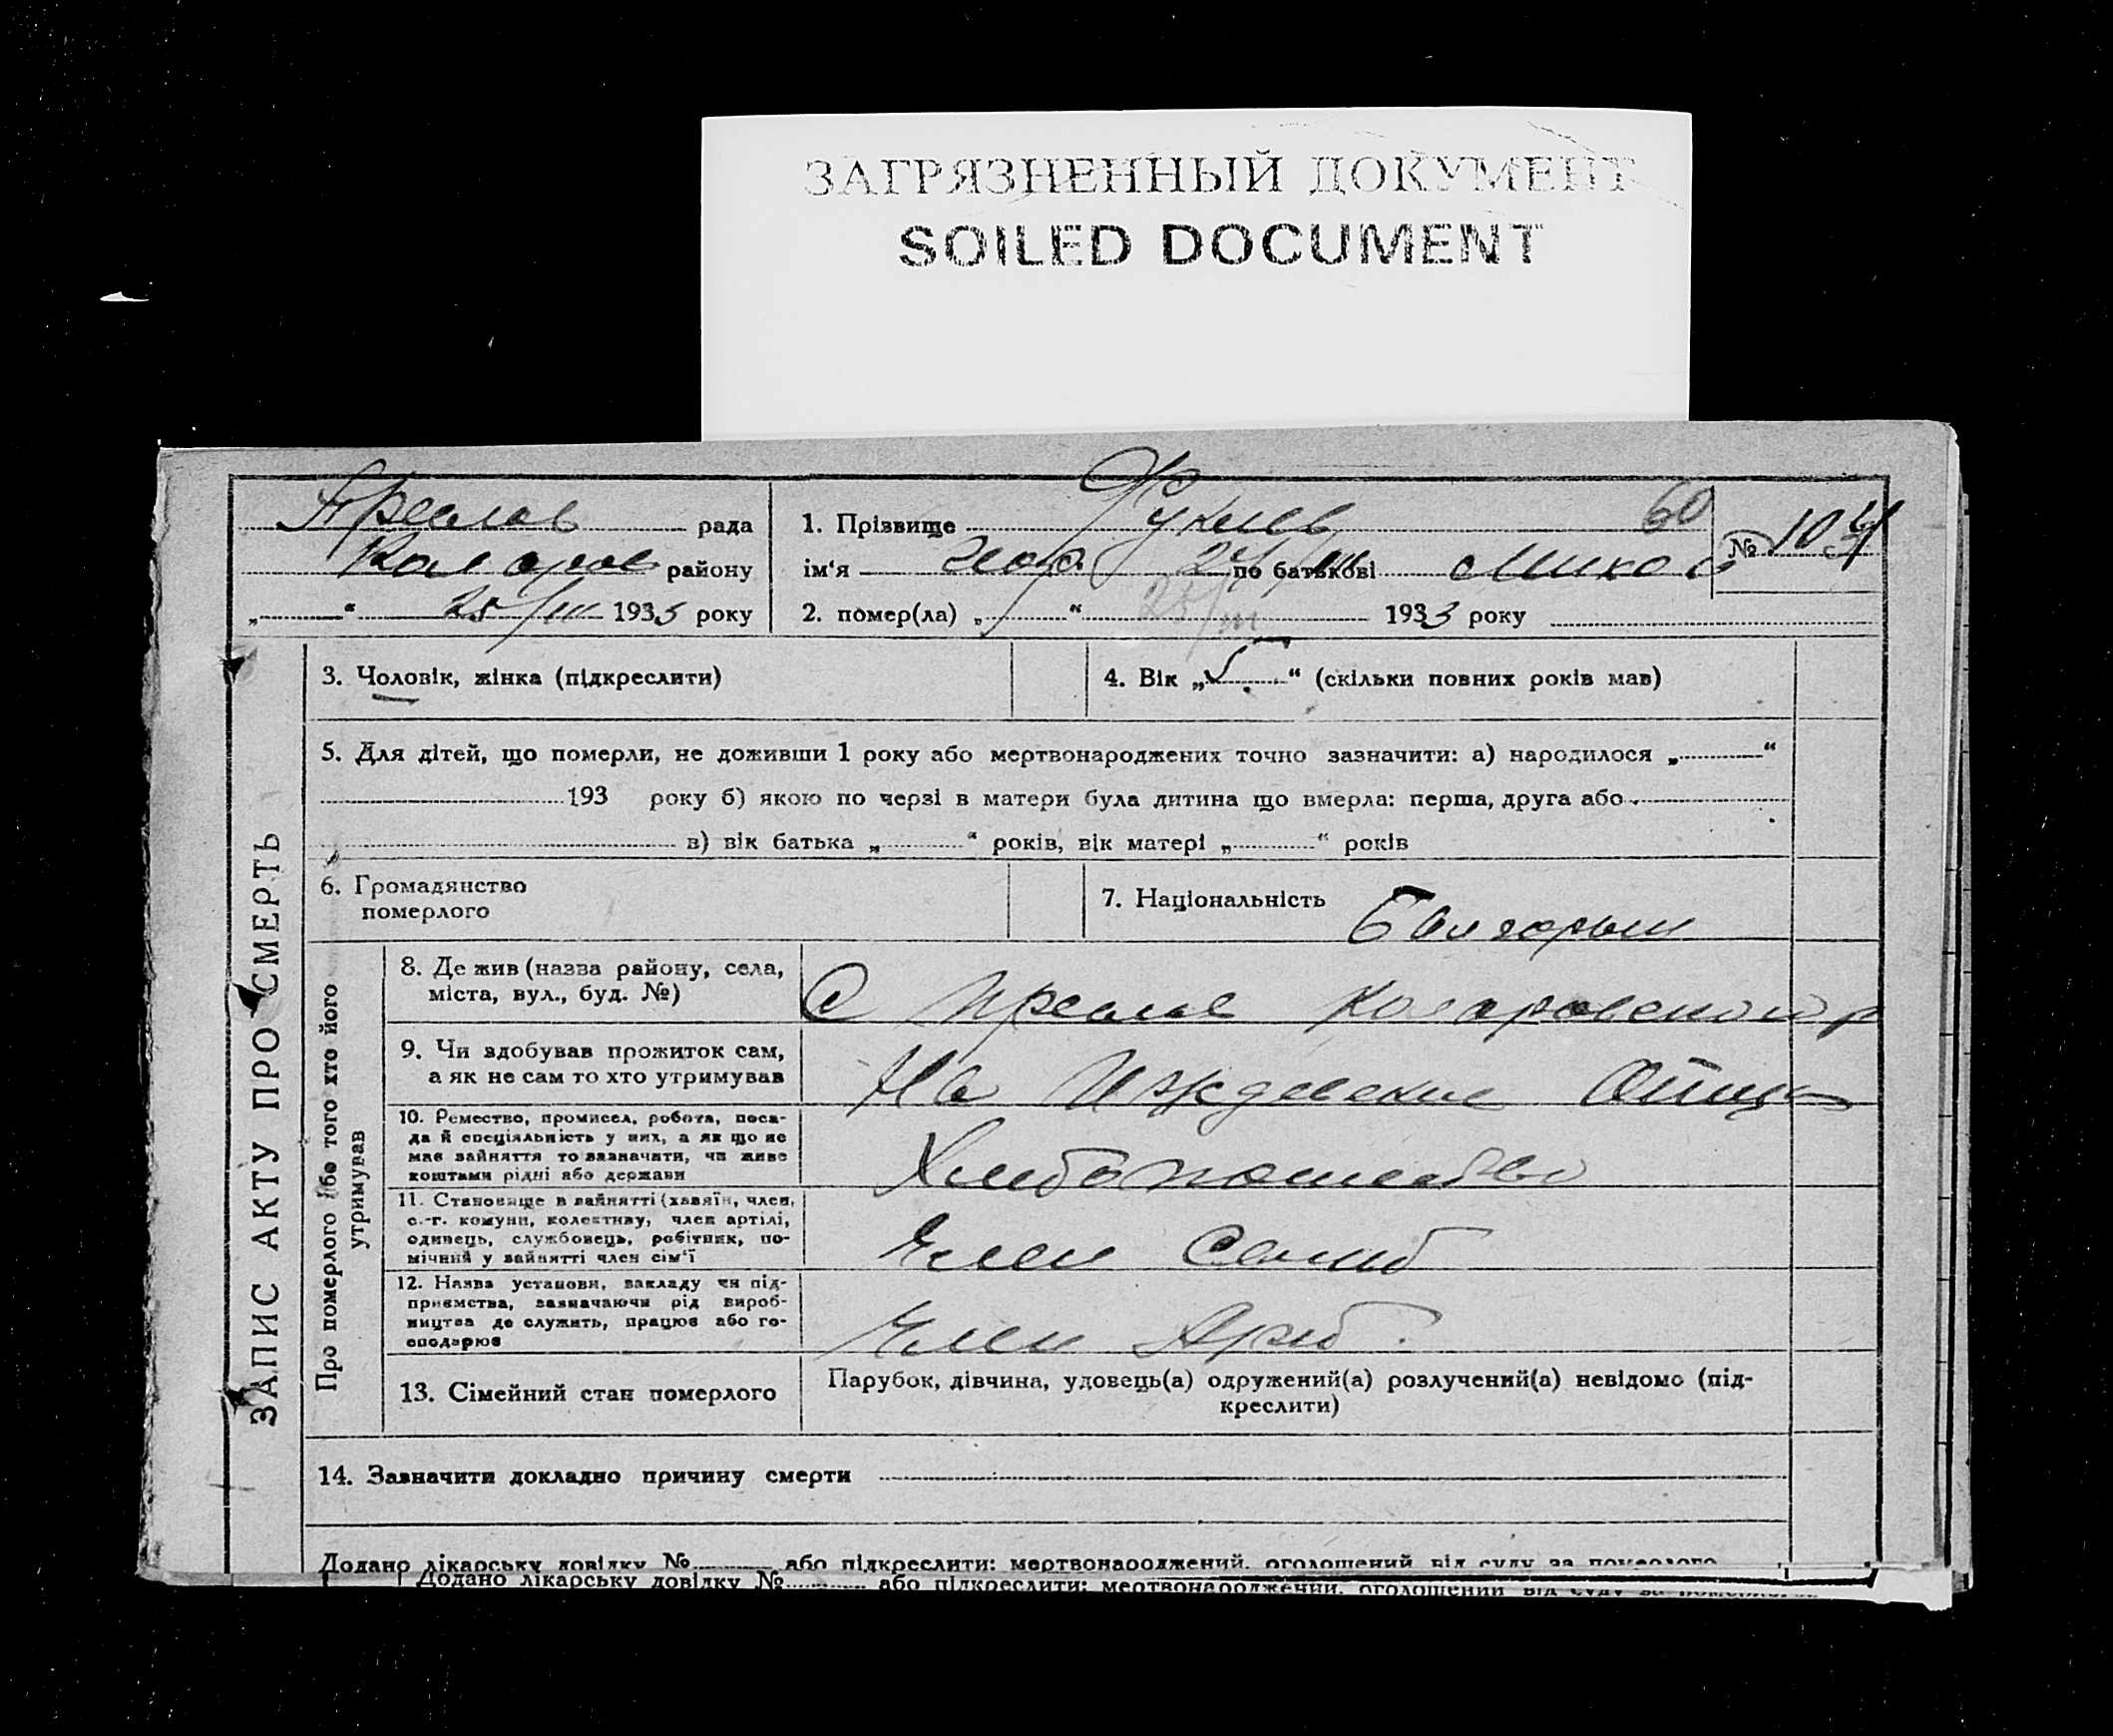 ЗАГРЯЗНЕННЫЙ ДОКУМЕНТ
SOILED DOCUMENT
рада
району
„ “ 25/III 1933 року
1. Прізвище 60
ім‘я по батькові
2. помер(ла) „ “ 25/III 1933 року
№ 104
ЗАПИС АКТУ ПРО СМЕРТЬ
3. Чоловік, жінка (підкреслити)
4. Вік „5“ (скільки повних років мав)
5. Для дітей, що померли, не доживши 1 року або мертвонароджених точно зазначити: а) народилося „ “
193 року б) якою по черзі в матери була дитина що вмерла: перша, друга або
в) вік батька „ “ років, вік матері „ “ років
6. Громадянство
померлого
7. Національність Болгарын
Про померлого або того хто його
утримував
8. Де жив (назва району, села,
міста, вул., буд. №)
С Преслав Коларовского р
9. Чи здобував прожиток сам,
а як не сам то хто утримував
На Иждевение Отца
10. Ремество, промисел, робота, поса-
да й спеціяльність у них, а як що не
має зайняття то зазначити, чи живе
коштами рідні або держави
11. Становище в зайнятті (хазяїн, член,
с.-г. комуни, колективу, член артілі,
одинець, службовець, робітник, по-
мічний у зайнятті член сім‘ї
Член
12. Назва установи, закладу чи під-
приємства, зазначаючи рід вироб-
ництва де служить, працює або го-
сподарює
Член
13. Сімейний стан померлого
Парубок, дівчина, удовець(а) одружений(а) розлучений(а) невідомо (під-
креслити)
14. Зазначити докладно причину смерти
Додано лікарську довідку № або підкреслити: мертвонароджений, оголошений від суду за померлого
Додано лікарську довідку № або підкреслити: мертвонароджений, оголошений від суду за